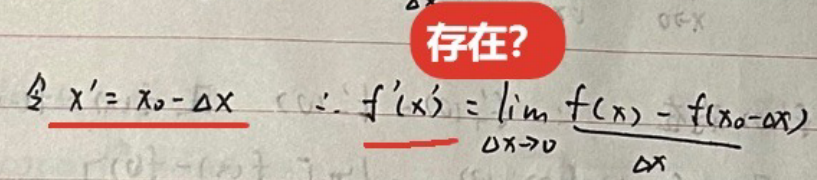 存在?
令 x' = x₀ - Δx ∴ f'(x') = lim Δx→0 f(x) - f(x₀-Δx) / Δx